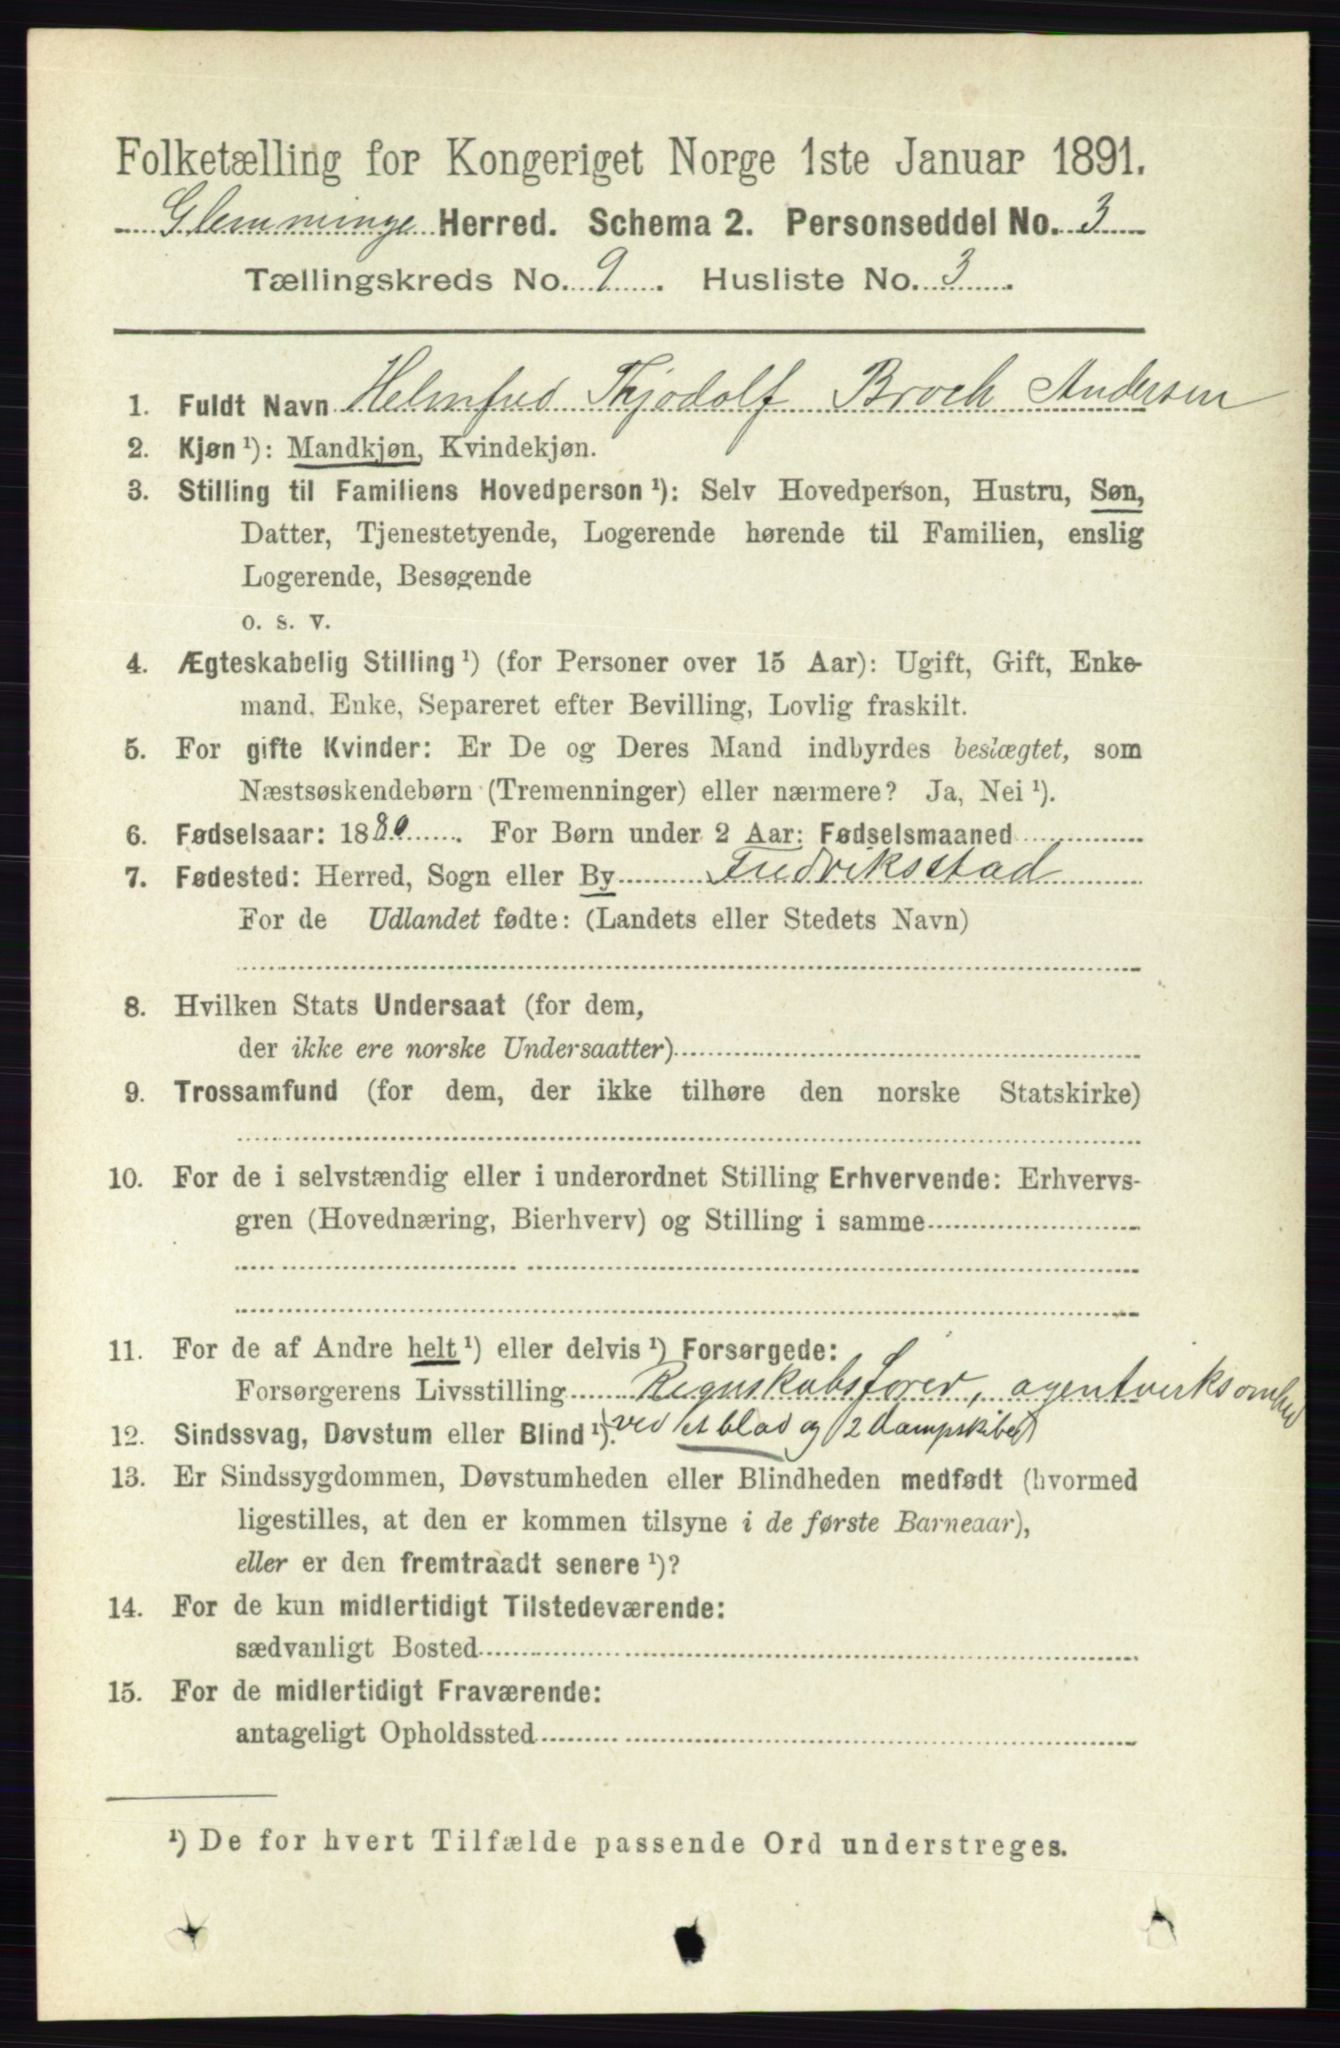 Folketælling for Kongeriget Norge 1ste Januar 1891.
Glemminge Herred. Schema 2. Personseddel No. 3
Tællingskreds No. 9. Husliste No. 3.
1. Fuldt Navn Helmfred Thjodolf Broch Andersen
2. Kjøn¹): Mandkjøn, Kvindekjøn.
3. Stilling til Familiens Hovedperson¹): Selv Hovedperson, Hustru, Søn,
Datter, Tjenestetyende, Logerende hørende til Familien, enslig
Logerende, Besøgende
o. s. v.
4. Ægteskabelig Stilling¹) (for Personer over 15 Aar): Ugift, Gift, Enke-
mand, Enke, Separeret efter Bevilling, Lovlig fraskilt.
5. For gifte Kvinder: Er De og Deres Mand indbyrdes beslægtet, som
Næstsøskendebørn (Tremenninger) eller nærmere? Ja, Nei¹).
6. Fødselsaar: 1880. For Børn under 2 Aar: Fødselsmaaned
7. Fødested: Herred, Sogn eller By Fredriksstad
For de Udlandet fødte: (Landets eller Stedets Navn)
8. Hvilken Stats Undersaat (for dem,
der ikke ere norske Undersaatter)
9. Trossamfund (for dem, der ikke tilhøre den norske Statskirke)
10. For de i selvstændig eller i underordnet Stilling Erhvervende: Erhvervs-
gren (Hovednæring, Bierhverv) og Stilling i samme
11. For de af Andre helt¹) eller delvis¹) Forsørgede:
Forsørgerens Livsstilling Regnskabsfører, agentvirksomhed
12. Sindssvag, Døvstum eller Blind¹). ved et blad og 2 dampskibe
13. Er Sindssygdommen, Døvstumheden eller Blindheden medfødt (hvormed
ligestilles, at den er kommen tilsyne i de første Barneaar),
eller er den fremtraadt senere¹)?
14. For de kun midlertidigt Tilstedeværende:
sædvanligt Bosted
15. For de midlertidigt Fraværende:
antageligt Opholdssted
¹) De for hvert Tilfælde passende Ord understreges.